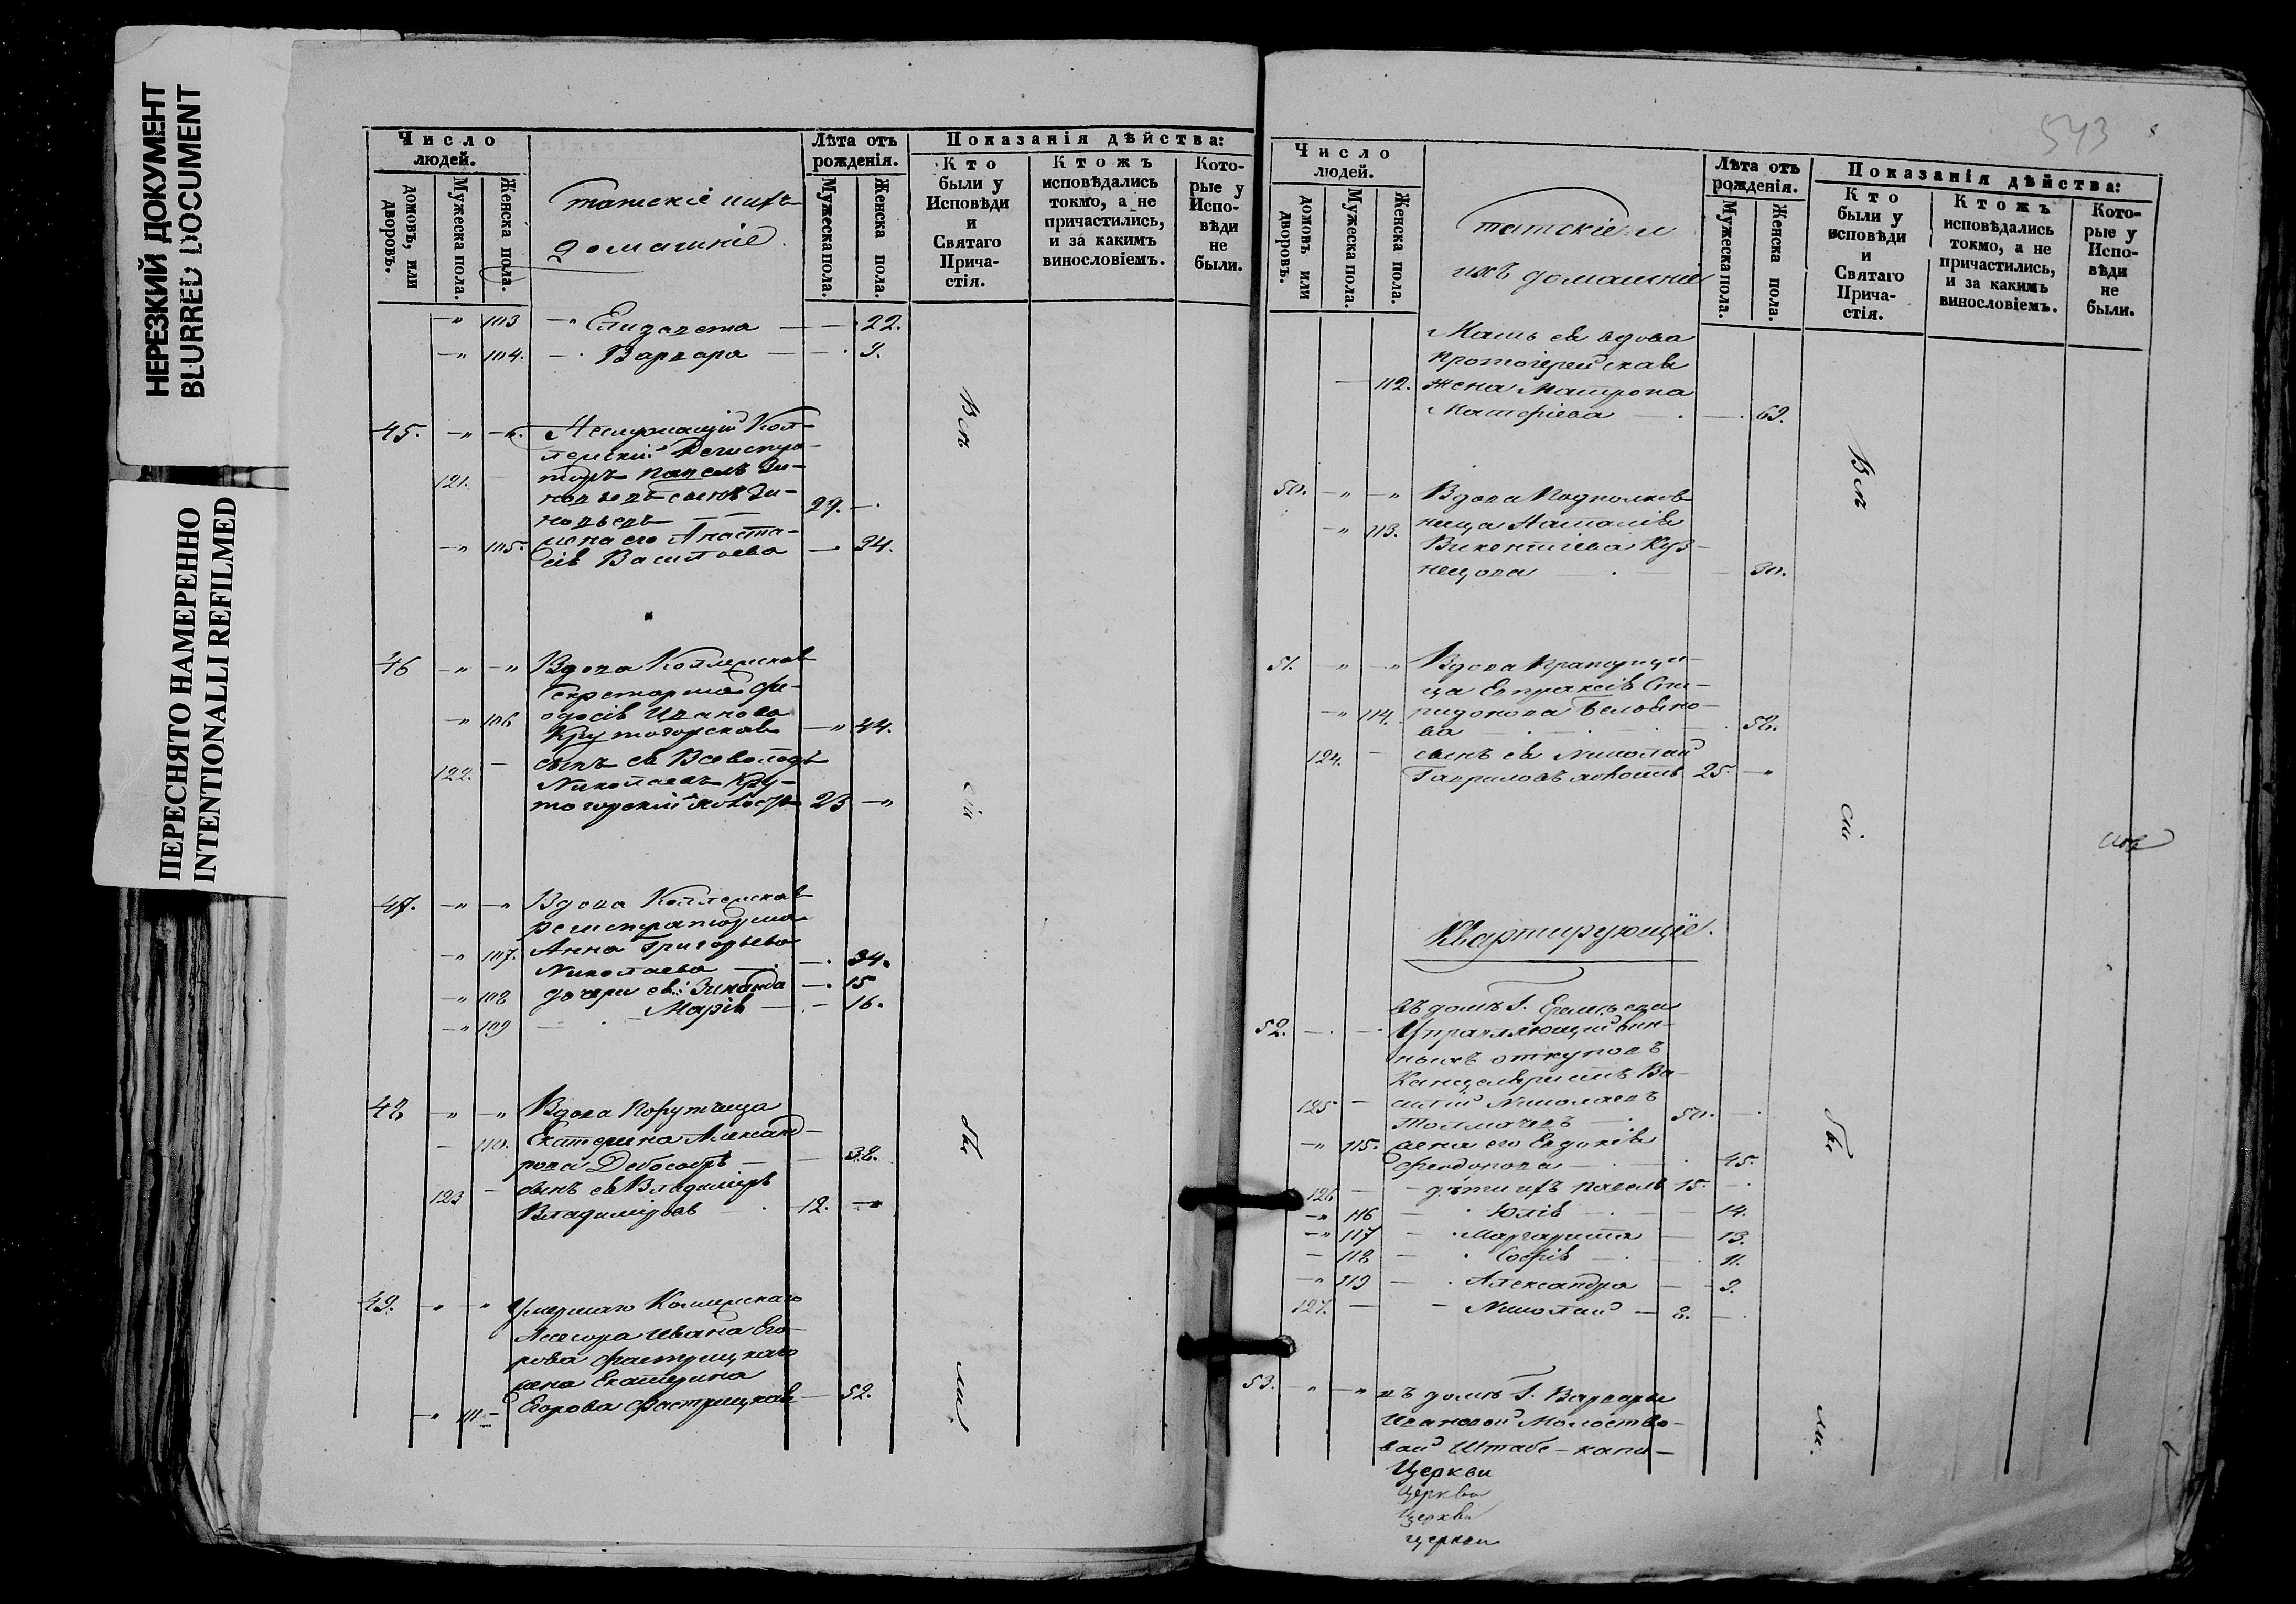 НЕРЕЗКИЙ ДОКУМЕНТ
BLURRED DOCUMENT
ПЕРЕСНЯТО НАМЕРЕННО
INTENTIONALLI REFILMED
Число людей.
домовъ, или дворовъ.
Мужеска пола.
Женска пола.
татскіе ихъ
домашніе.
Лѣта отъ рожденія.
Мужеска пола.
Женска пола.
Показанія дѣйства:
Кто были у Исповѣди и Святаго Прича-стія.
Ктожъ исповѣдались токмо, а не причастились, и за какимъ винословіемъ.
Кото-рые у Испо-вѣди не были.
-" 103 -" Елизавета — — 22.
-" 104. — . Варвара — — . 9.
45. -" -". Неслужащій Кол-
лежскій Регистра-
121. торъ Павелъ Зи-
новьевъ сынъ Зи-
новьевъ — 29. — .
-" 105. жена его Анаста-
сія Васильева — 34.
46 -" -" Вдова Коллежская
Секретарша Фе-
-" 106 одосія Иванова
Крутогорская -" 44.
122. — сынъ ея Всеволодъ
Николаевъ Кру-
тогорскій 23 -"
47. -" -" Вдова Коллежская
регистраторша
-" 107. Анна Григорьева
Николаева — . 34.
-" 108 дочери ея: Зинаида — . 15
-" 109 — . Марія — . - 16.
48 -" -" Вдова Порутчица
- 110. Екатерина Александ-
рова — 38.
123 — сынъ ея Владиміръ
Владиміровъ . 12. -"
49. " " Умершаго Коллежскаго
Асесора Ивана Его-
рова
жена Екатерина
-" 111 - Егорова — 52.
Всѣ
сіи
бы
ли
543
Число людей.
домовъ или дворовъ.
Мужеска пола.
Женска пола.
татскіе и
ихъ домашніе
Лѣта отъ рожденія.
Мужеска пола.
Женска пола.
Показанія дѣйства:
Кто были у исповѣди и Святаго Прича-стія.
Ктожъ исповѣдались токмо, а не причастились, и за какимъ винословіемъ.
Кото-рые у Испо-вѣди не были.
Мать ея вдова
протоіерейская
— 112. жена Матрона
Матфіева — . — . 69.
50. -" -" Вдова Подполков
-" 113. ница Наталія
Викентіева Куз-
нецова — . — 30.
51. -" -" Вдова Прапорщи-
ца Евпраксія Спи-
-" 114. ридонова
ва 58.
124. — сынъ ея Николай
Гавриловъ 25. -"
Квартирующіе.
въ домѣ Г.
52. — . — . Управляющій вин-
ныхъ откуповъ
Канцеляристъ Ва-
125 — силій Николаевъ
Толмачевъ — 50. — .
-" 115. жена его Евдокія
Феодорова — . — . 45.
126 — - дѣти ихъ Павелъ 15. — .
-" 116 — . Юлія — . — 14.
-" 117 — . Маргарита — 13.
- 118 — . Софія — . 11.
-" 119 — . Александра — - 9.
127. — — Николай — 8. — .
53. -" -" въ домѣ Г. Варвары
Ивановой Молоство-
вой Штабс-капи-
Всѣ
сіи
бы
ли.
Церкви
Церкви
Церкви
церкви